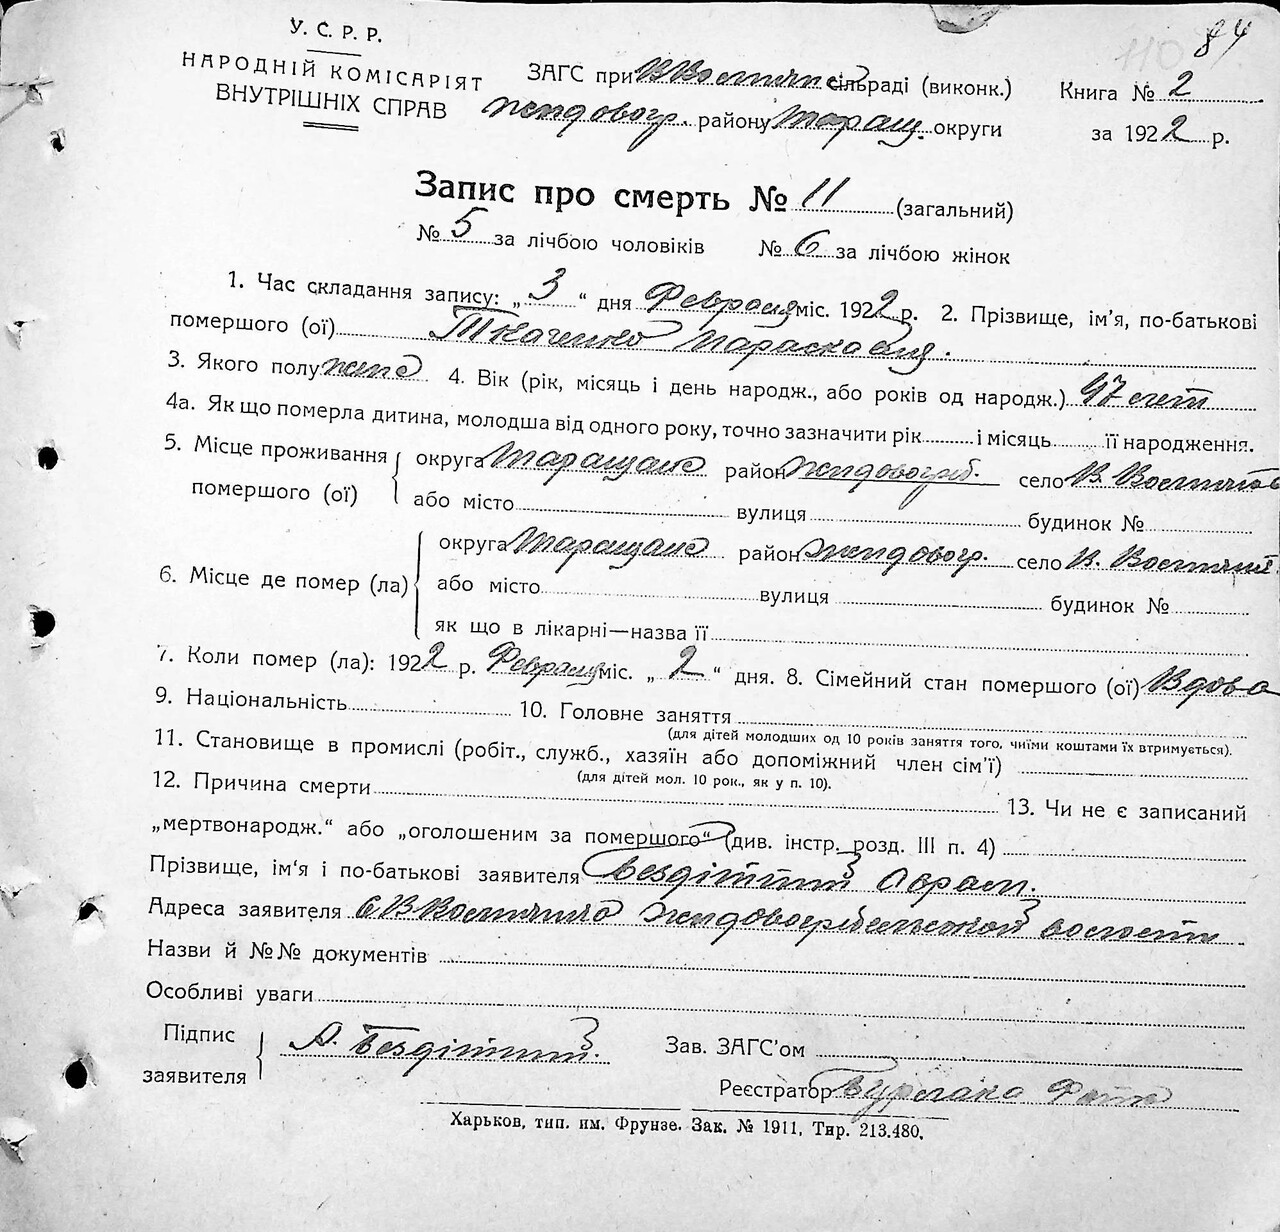 84
110
У. С. Р. Р.
НАРОДНІЙ КОМІСАРІЯТ
ВНУТРІШНІХ СПРАВ
ЗАГС при сільраді (виконк.)
району Таращ. округи
Книга № 2
за 1922 р.
Запис про смерть № 11 (загальний)
№ 5 за лічбою чоловіків № 6 за лічбою жінок
1. Час складання запису: „3“ дня Февраля міс. 1922 р. 2. Прізвище, ім’я, по-батькові
помершого (ої) Ткаченко Параска
3. Якого полу жена 4. Вік (рік, місяць і день народж., або років од народж.) 47 лет
4а. Як що померла дитина, молодша від одного року, точно зазначити рік і місяць її народження.
5. Місце проживання
помершого (ої)
округа Таращанс район село В.
або місто вулиця будинок №
6. Місце де помер (ла)
округа Таращанс район Жидовогр. село В.
або місто вулиця будинок №
як що в лікарні—назва її
7. Коли помер (ла): 1922 р. Февраля міс. „2“ дня. 8. Сімейний стан помершого (ої) Вдова
9. Національність 10. Головне заняття
(для дітей молодших од 10 років заняття того, чиїми коштами їх втримується).
11. Становище в промислі (робіт., служб., хазяїн або допоміжний член сім’ї)
(для дітей мол. 10 рок., як у п. 10).
12. Причина смерти 13. Чи не є записаний
„мертвонародж.“ або „оголошеним за помершого“ (див. інстр. розд. III п. 4)
Прізвище, ім‘я і по-батькові заявителя Бездітний Аврам.
Адреса заявителя волости
Назви й №№ документів
Особливі уваги
Підпис
заявителя
А. Бездітний.
Зав. ЗАГС’ом
Реєстратор Бурлака
Харьков, тип. им. Фрунзе. Зак. № 1911, Тир. 213.480.